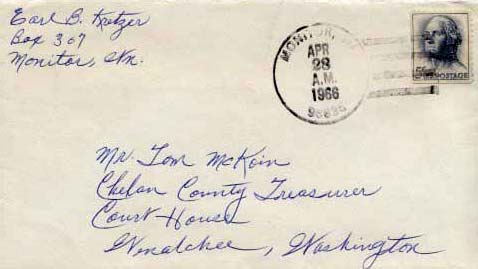 Earl B. Kratzer
Box 307
Monitor, Wn.
MONITOR,
APR
28
A.M.
1966
5c U.S. POSTAGE
Mr. Tom McKoin
Chelan County Treasurer
Court House
Wenatchee, Washington